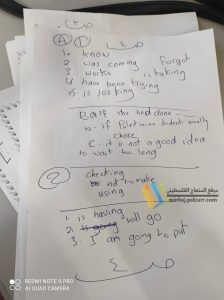 ص ٣
A 1
1. know
2 was coming forgot
3 works is taking
4. have been trying
5. is looking
B a. if she had done
b. if Palestinian students usually
chose
C. it is not a good idea
to wait too long
2 checking
not to make
using
موقع المنهاج الفلسطيني
minhaj.palcurr.com
1. is having will go
2.
3. I am going to put
ص ٤
REDMI NOTE 9 PRO
AI QUAD CAMERA